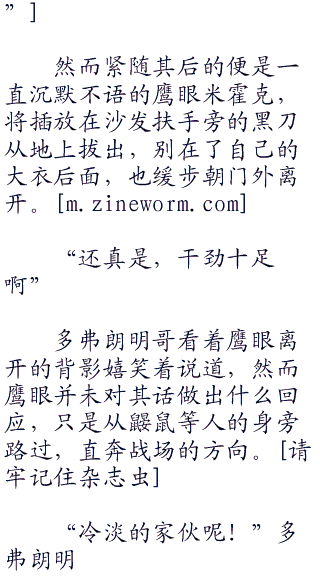 ”]
然而紧随其后的便是一
直沉默不语的鹰眼米霍克，
将插放在沙发扶手旁的黑刀
从地上拔出，别在了自己的
大衣后面，也缓步朝门外离
开。[m.zineworm.com]
“还真是，干劲十足
啊”
多弗朗明哥看着鹰眼离
开的背影嬉笑着说道，然而
鹰眼并未对其话做出什么回
应，只是从鼹鼠等人的身旁
路过，直奔战场的方向。[请
牢记住杂志虫]
“冷淡的家伙呢！”多
弗朗明